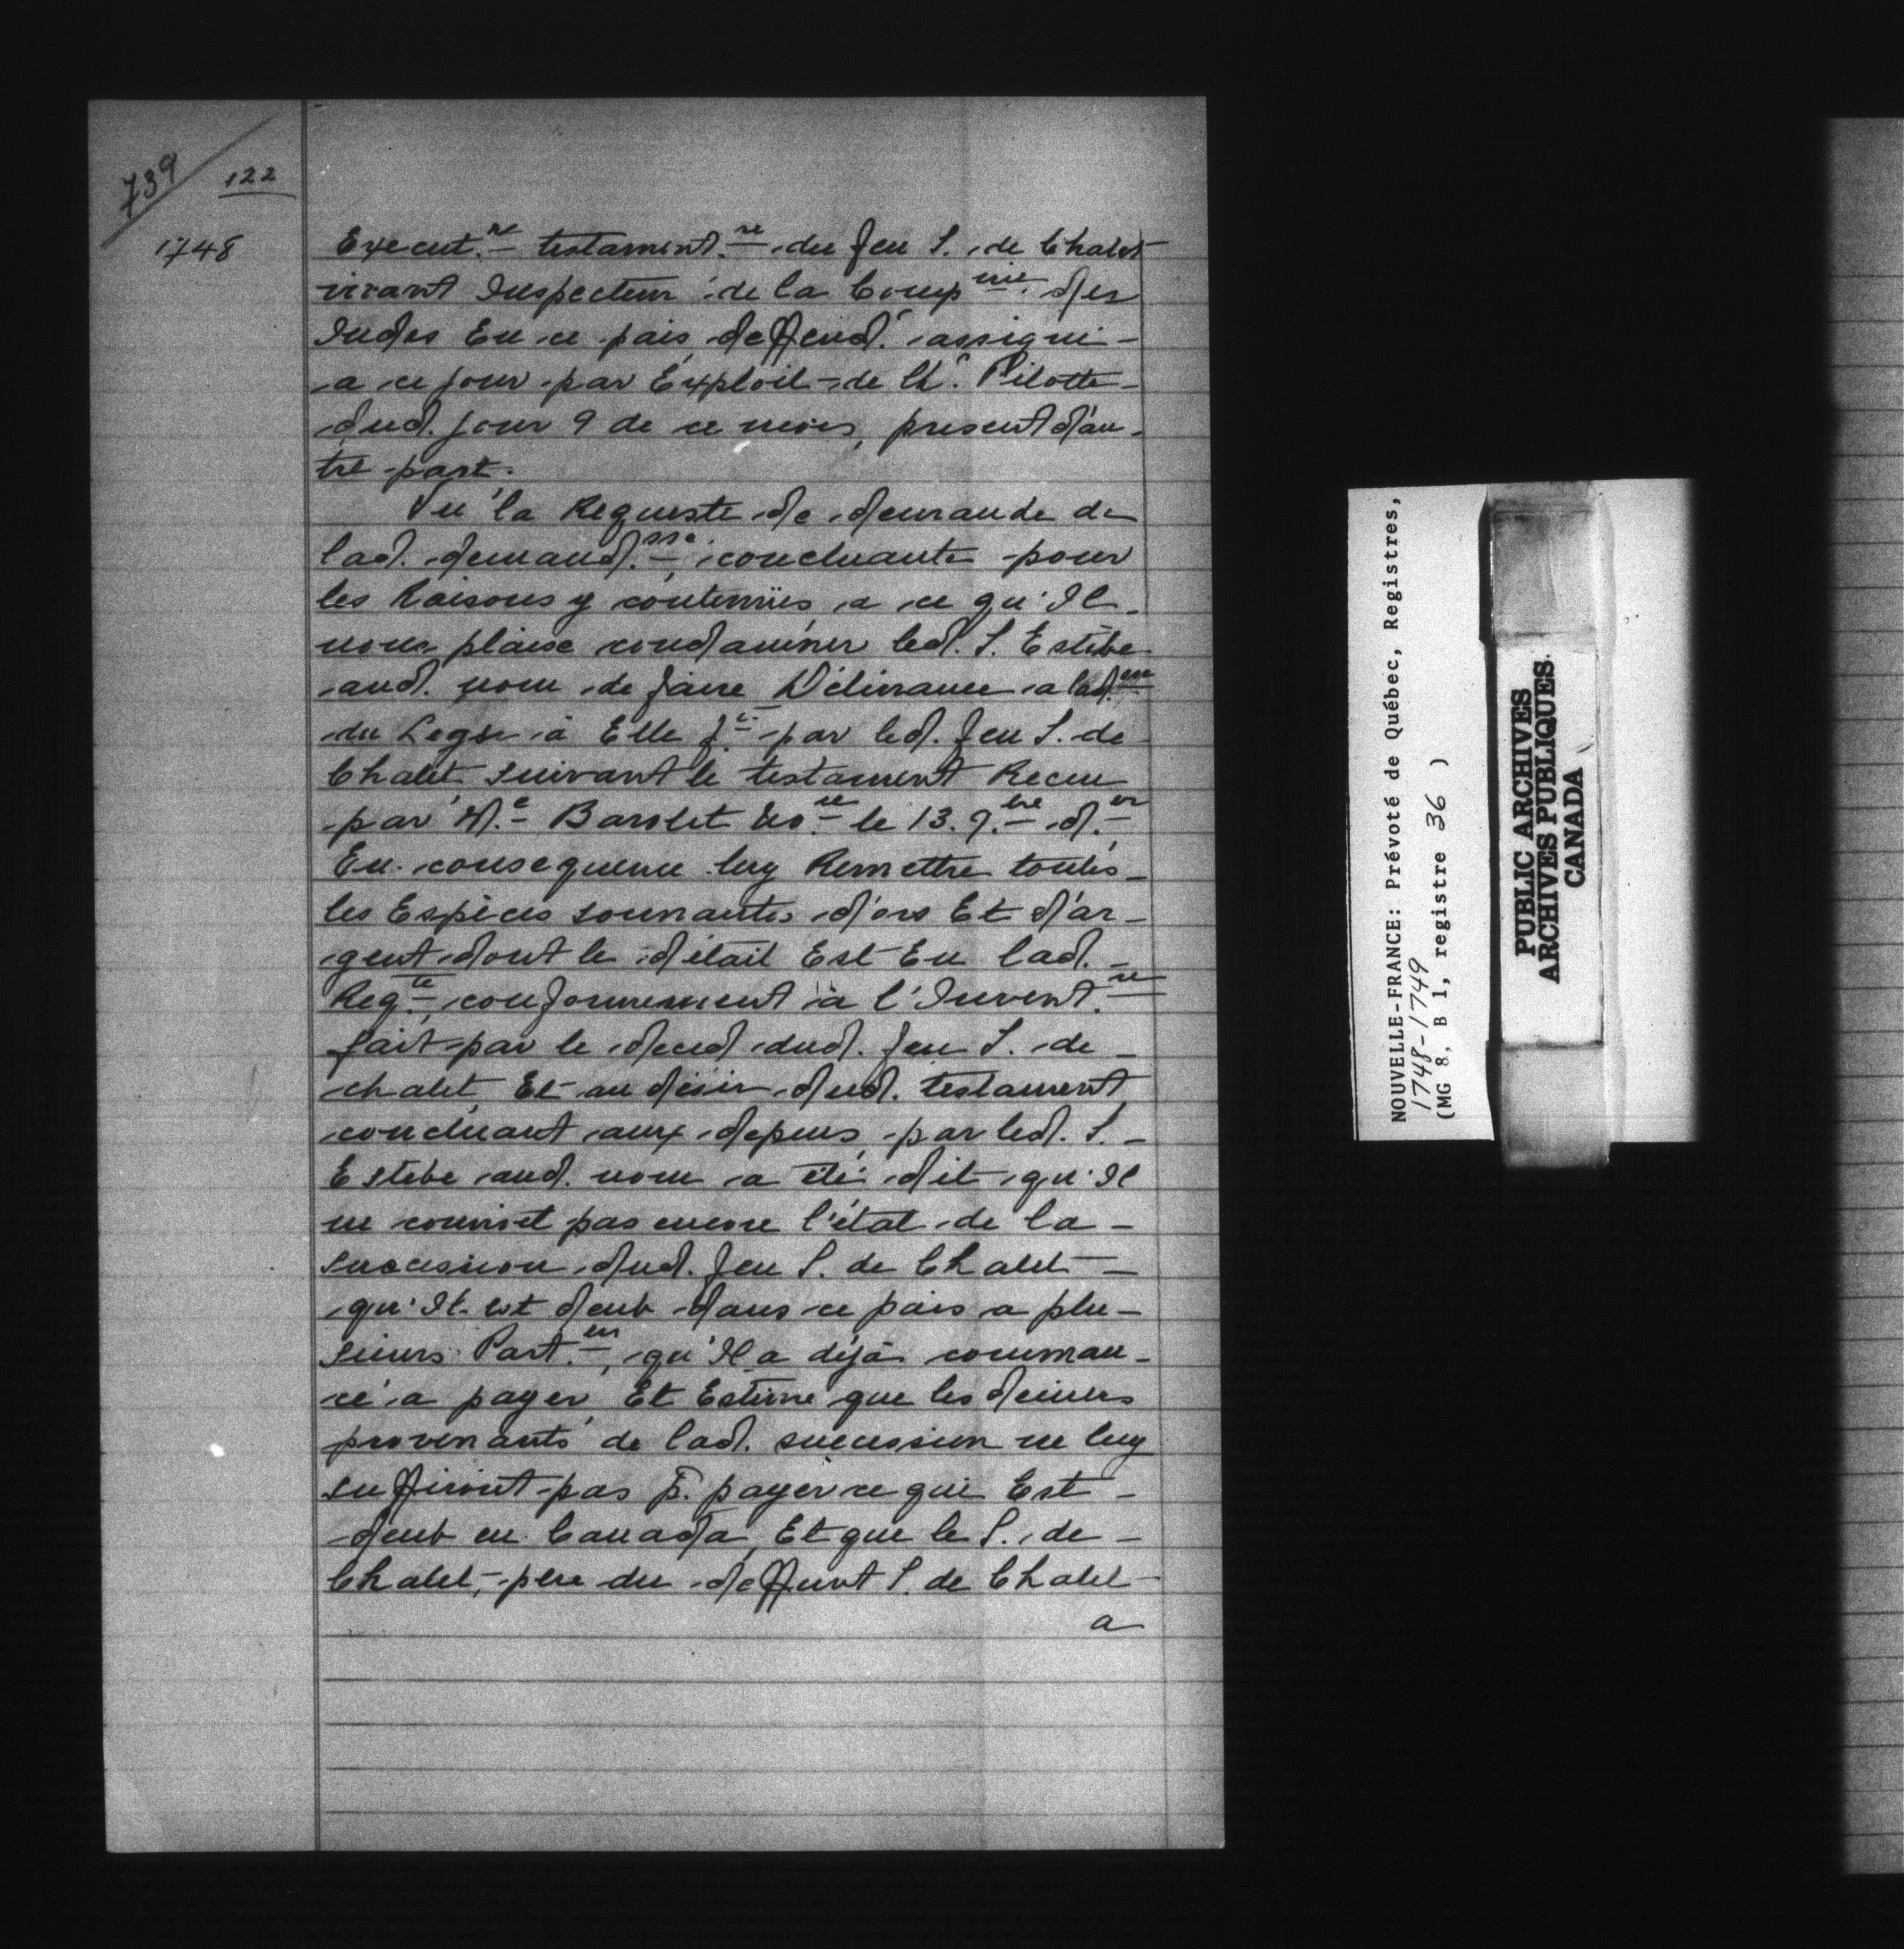 739
122
1748
Execut.re testament.re du feu S. de Chalet
vivant Inspecteur de la Comp.nie des
Indes En ce païs deffend.r assigné
a ce jour par Exploit de Ch.r Pilotte
dud. jour 9 de ce mois, present d'au-
tre part.
Vu la Requeste de demande de
lad. demand.sse, concluante pour
les Raisons y contenües a ce qu'Il
nous plaise condamner led. S. Estèbe
aud. nom de faire Délivrance a lad.
du Legs à Elle f.t par led. feu S. de
Chalet suivant le testament Receu
par M.e Barolet No.re le 13. 9.bre d.er
En consequence luy Remettre toutes
les Espèces sonnantes d'ors Et d'ar-
gent dont le détail Est En lad.
Req.te, conformement à l'Invent.re
fait par le deced dud. feu S. de
chalet, Et au désir dud. testament,
concluant aux depens, par led. S.
Estebe aud. nom a été dit qu'Il
ne connoit pas encore l'état de la
succession dud. feu S. de Chalet
qu'Il est deub dans ce païs a plu-
sieurs Part.ers, qu'Il a déjà comman-
cé a payer, Et Estime que les deniers
provenants de lad. succession ne luy
suffiront pas p.r payer ce qui Est
deub en Canada, Et que le S. de
Chalet, pere du deffunt S. de Chalet
a
NOUVELLE-FRANCE: Prévoté de Québec, Registres,
1748-1749
(MG 8, B 1, registre 36 )
PUBLIC ARCHIVES
ARCHIVES PUBLIQUES
CANADA